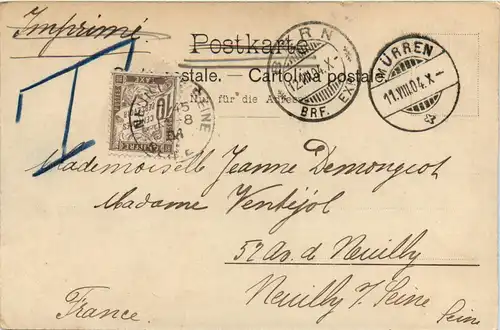 Imprimé
Postkarte
BERN
12.VIII.04.X-
BRF. EXP.
MÜRREN
11.VIII.04.X-
postale. — Cartolina postale
Nur für die Adresse
T
10
Mademoiselle Jeanne Demongeot
Madame Ventéjol
52 Av. d Neuilly
Neuilly s/ Seine
France. Seine